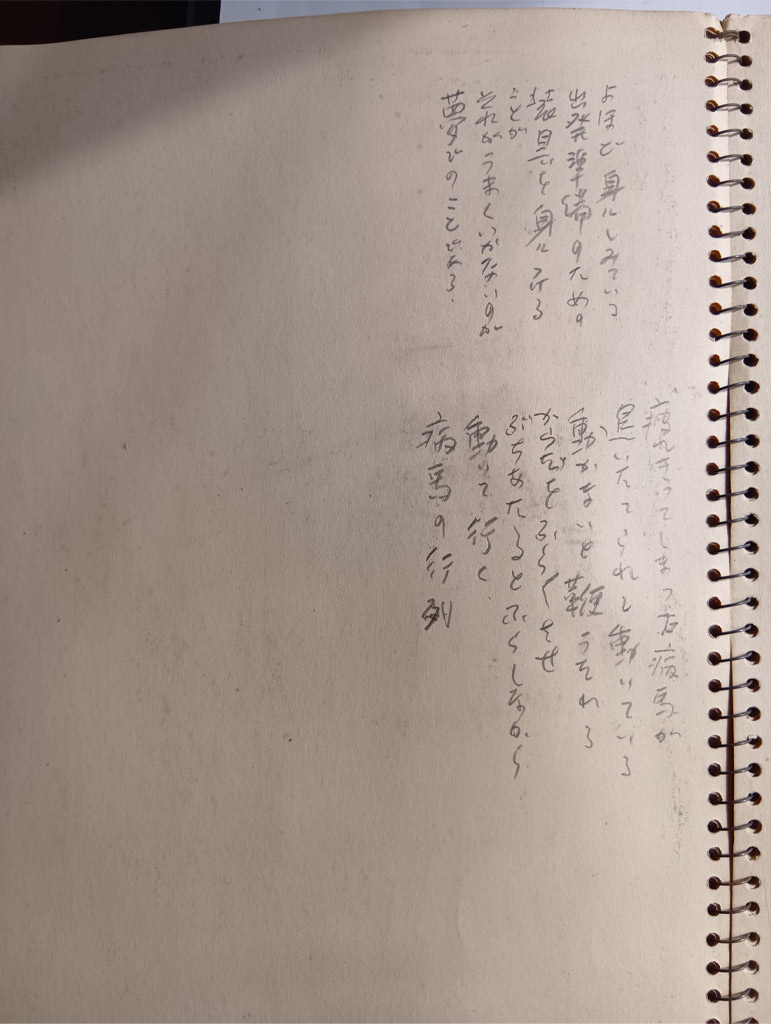 よほど身にしみていつ
出発準備のための
装具を身につける
ことが
それがうまくいかないのが
夢でのことである.
疲れきってしまった病馬が
追いたてられて動いている
動かないと鞭うたれる
からだをふらふらさせ
ぶちあたるとふらしながら
動いて行く.
病馬の行列